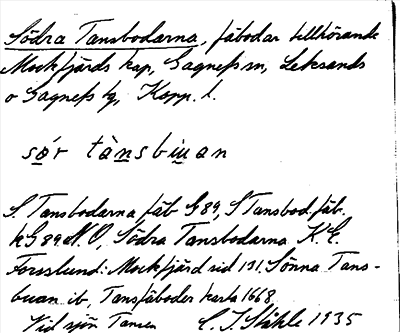 Södra Tansbodarna, fäbodar tillhörande
Mockfjärds kap, Gagnefs sn, Leksands
o Gagnefs tg, Kopp. l.
sǿr tànsbiuan
S. Tansbodarna fäb G89, S Tansbod. fäb.
kG89 N.O, Södra Tansbodarna K.E.
Forsslund: Mockfjärd sid 191. Sönna Tans-
buan ib, Tansfäboder karta 1668,
Vid sjön Tansen C. J. Ståhle 1935